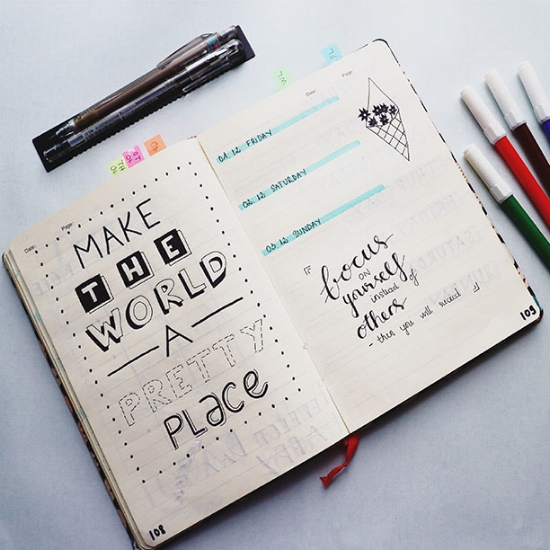 Date:
Page:
MAKE
THE
WORLD
A
PRETTY
PLACE
108
Date:
Page:
01.12 FRIDAY
02.12 SATURDAY
03.12 SUNDAY
focus
on
yourself
instead of
others
- then you will succeed
109